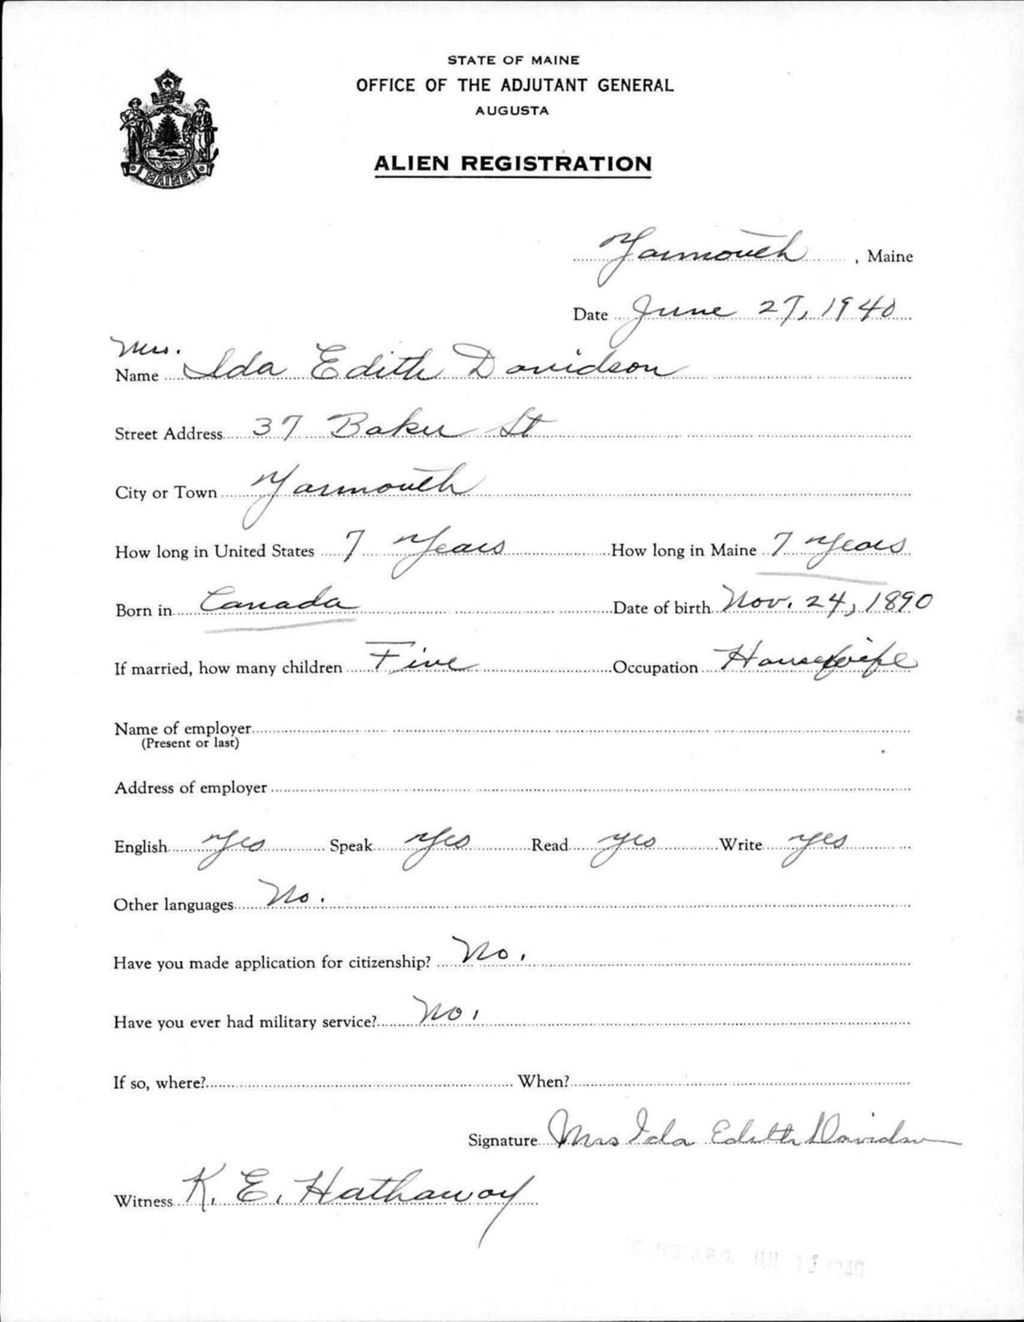 STATE OF MAINE
OFFICE OF THE ADJUTANT GENERAL
AUGUSTA
ALIEN REGISTRATION
MAINE
Yarmouth, Maine
Date June 27, 1940
Mrs.
Name Ida Edith Davidson
Street Address 37 Baker St
City or Town Yarmouth
How long in United States 7 Years How long in Maine 7 Years
Born in Canada Date of birth Nov. 24, 1890
If married, how many children Five Occupation Housewife
Name of employer
(Present or last)
Address of employer
English Yes Speak Yes Read Yes Write Yes
Other languages No.
Have you made application for citizenship? No.
Have you ever had military service? No.
If so, where? When?
Signature Mrs Ida Edith Davidson
Witness K. E. Hathaway
A.G.O. JUL 13 1940